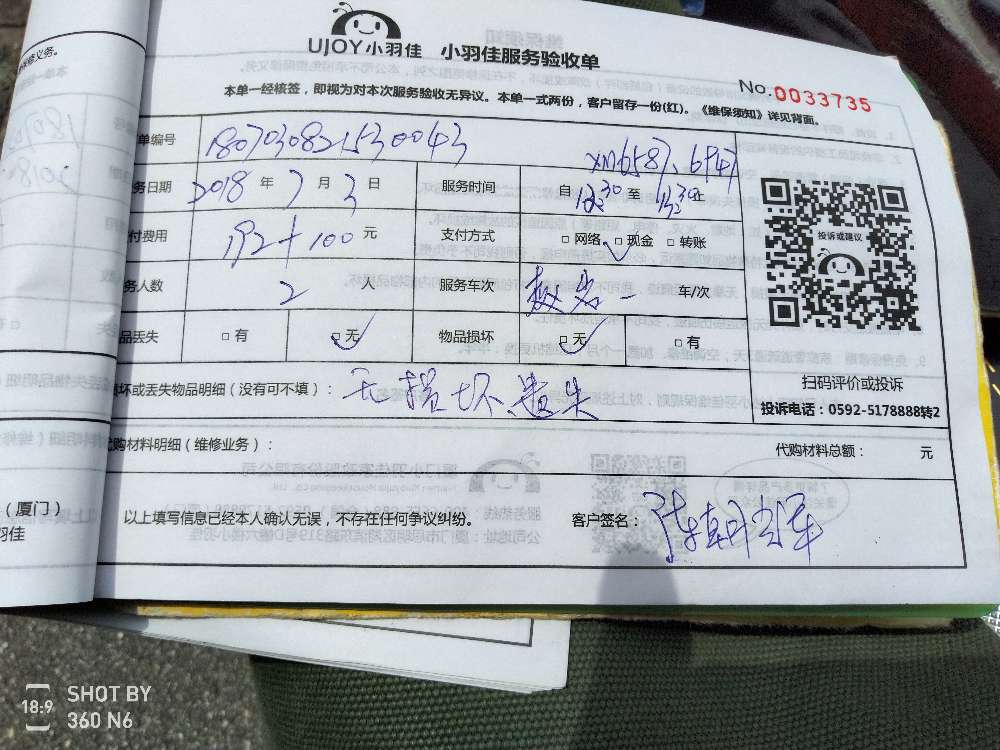 UJOY小羽佳 小羽佳服务验收单
No.0033735
本单一经核签，即视为对本次服务验收无异议。本单一式两份，客户留存一份(红)。《维保须知》详见背面。
单编号 1807030821530043 XM6587、6947
务日期 2018 年 7 月 3 日 服务时间 自 至 止
付费用 192+100 元 支付方式 □ 网络 □ 现金 □ 转账
务人数 2 人 服务车次 一 车/次
品丢失 □ 有 □ 无 物品损坏 □ 无 □ 有
投诉或建议
扫码评价或投诉
投诉电话：0592-5178888转2
坏或丢失物品明细（没有可不填）：无损坏、遗失
代购材料明细（维修业务）：
代购材料总额： 元
以上填写信息已经本人确认无误，不存在任何争议纠纷。
客户签名：
修义务。
（厦门）
羽佳
18:9 SHOT BY
360 N6